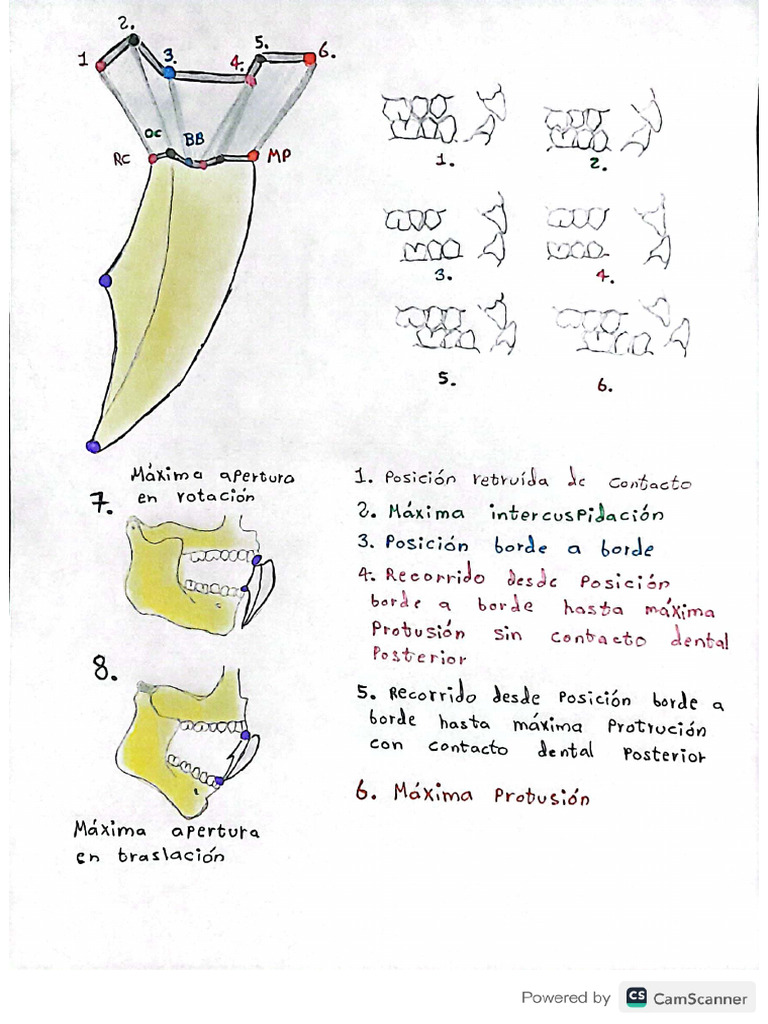 2.
1
3.
4.
5.
6.
OC
BB
RC
MP
1.
2.
3.
4.
5.
6.
Máxima apertura
7. en rotación
8.
Máxima apertura
en traslación
1. Posición retruída de contacto
2. Máxima intercuspidación
3. Posición borde a borde
4. Recorrido desde Posición
borde a borde hasta máxima
Protusión sin contacto dental
Posterior
5. Recorrido desde Posición borde a
borde hasta máxima Protrución
con contacto dental Posterior
6. Máxima Protusión
Powered by CS CamScanner